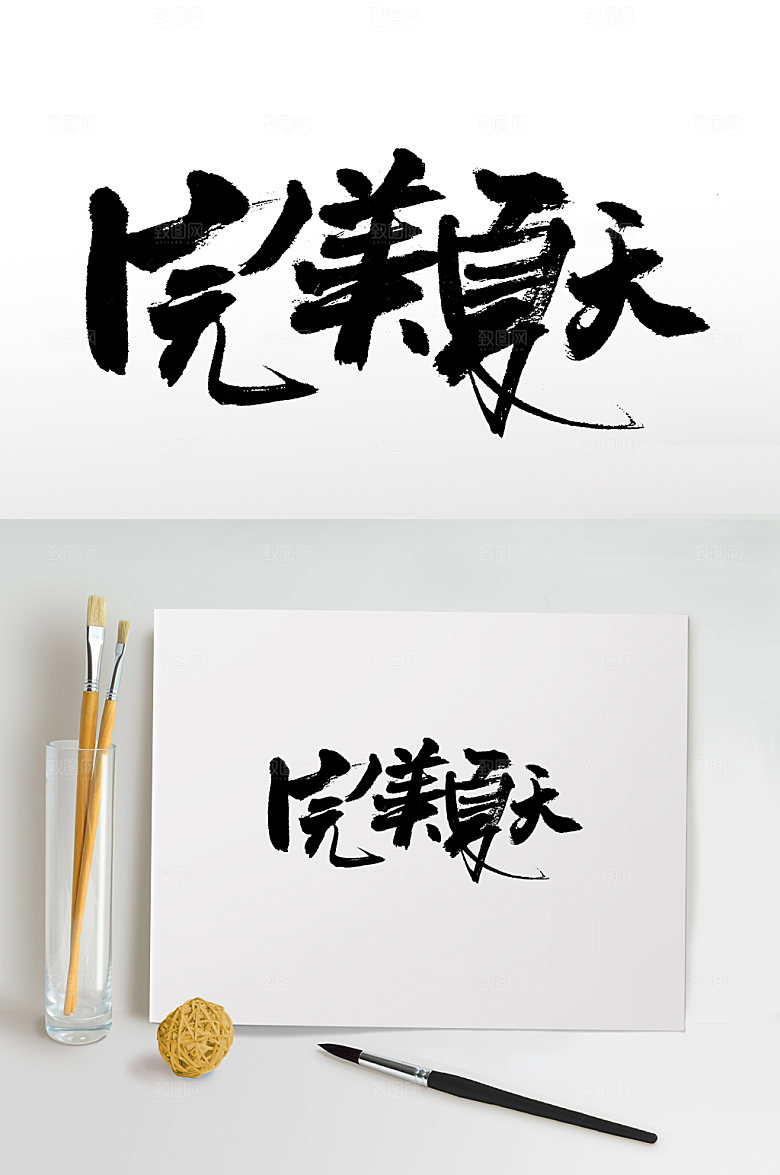 完美夏天
完美夏天